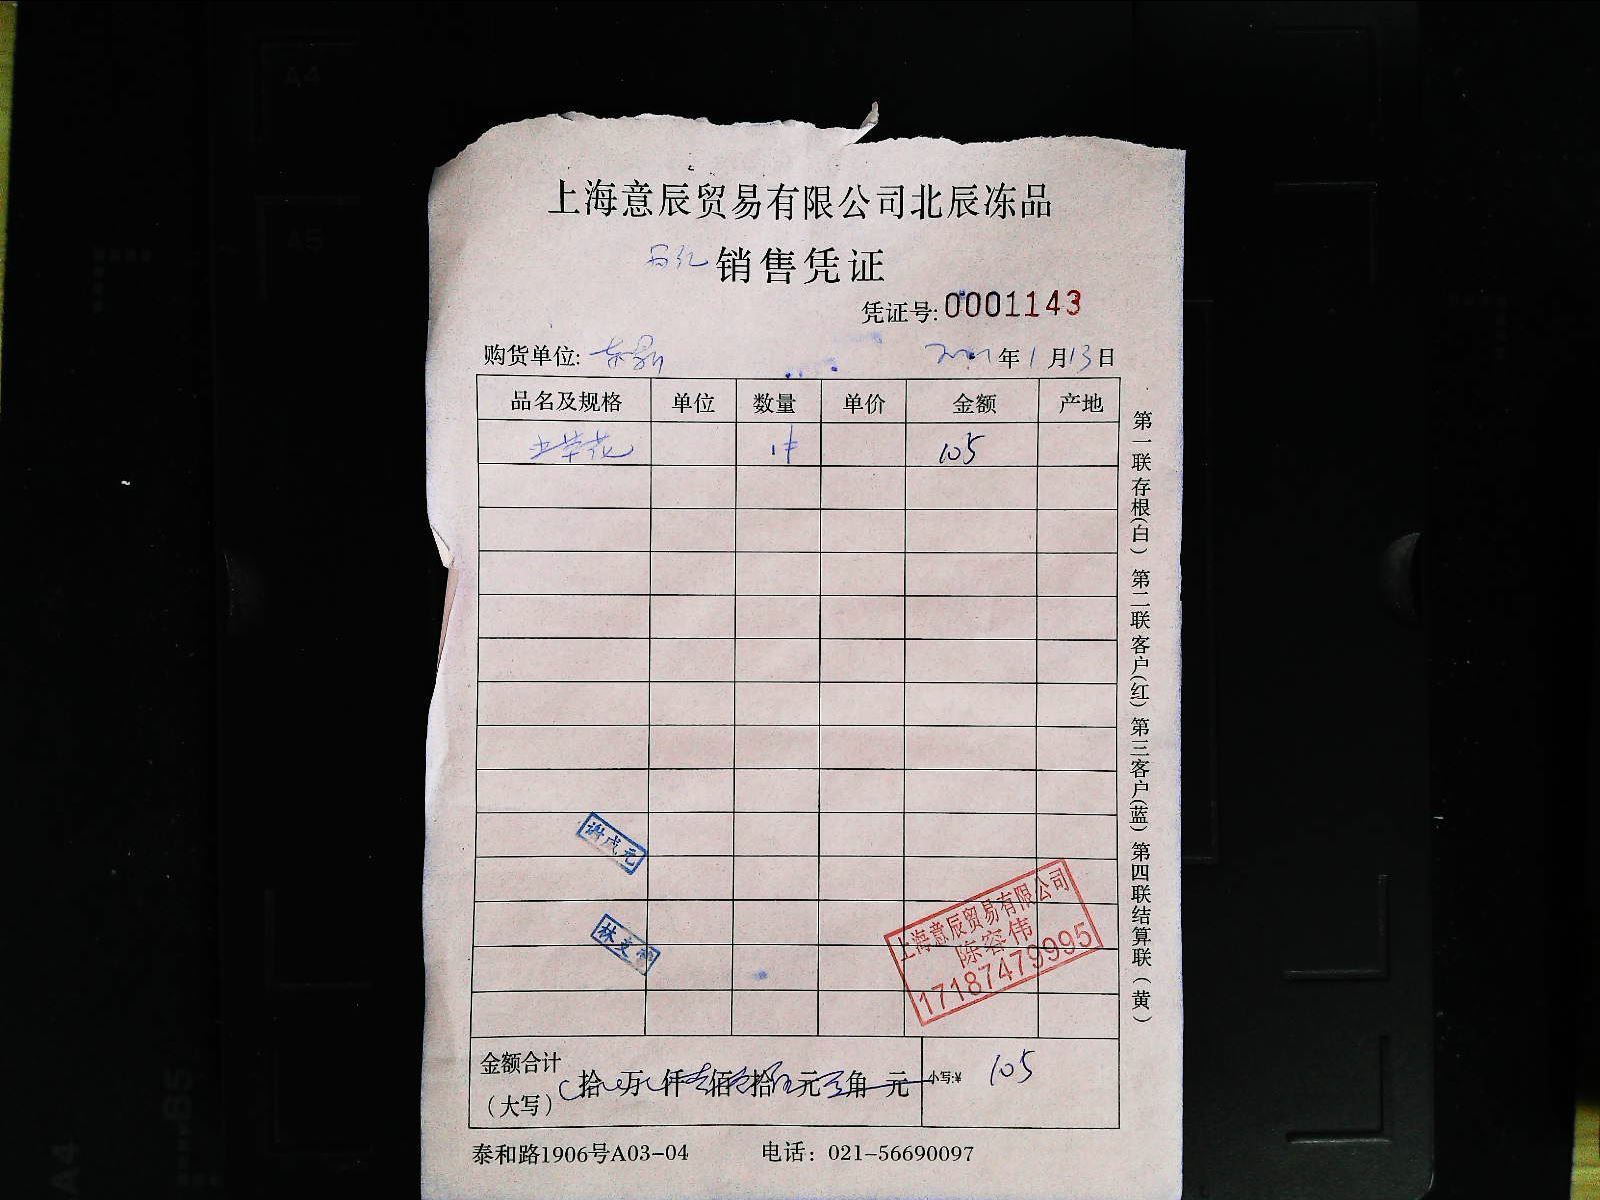 上海意辰贸易有限公司北辰冻品
销售凭证
凭证号:0001143
购货单位: 年1月13日
品名及规格 单位 数量 单价 金额 产地
花 1件 105
第一联存根(白) 第二联客户(红) 第三客户(蓝) 第四联结算联(黄)
谢成元
林文
上海意辰贸易有限公司
陈容伟
17187479995
金额合计
(大写) 拾 万 仟 佰 拾 元 角 元 小写:¥ 105
泰和路1906号A03-04 电话: 021-56690097
A4
A5
B5
A4